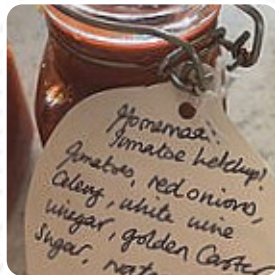 Homemade
Tomatoe ketchup!
Tomatoes, red onions,
Celery, white wine
vinegar, golden Caster
Sugar,